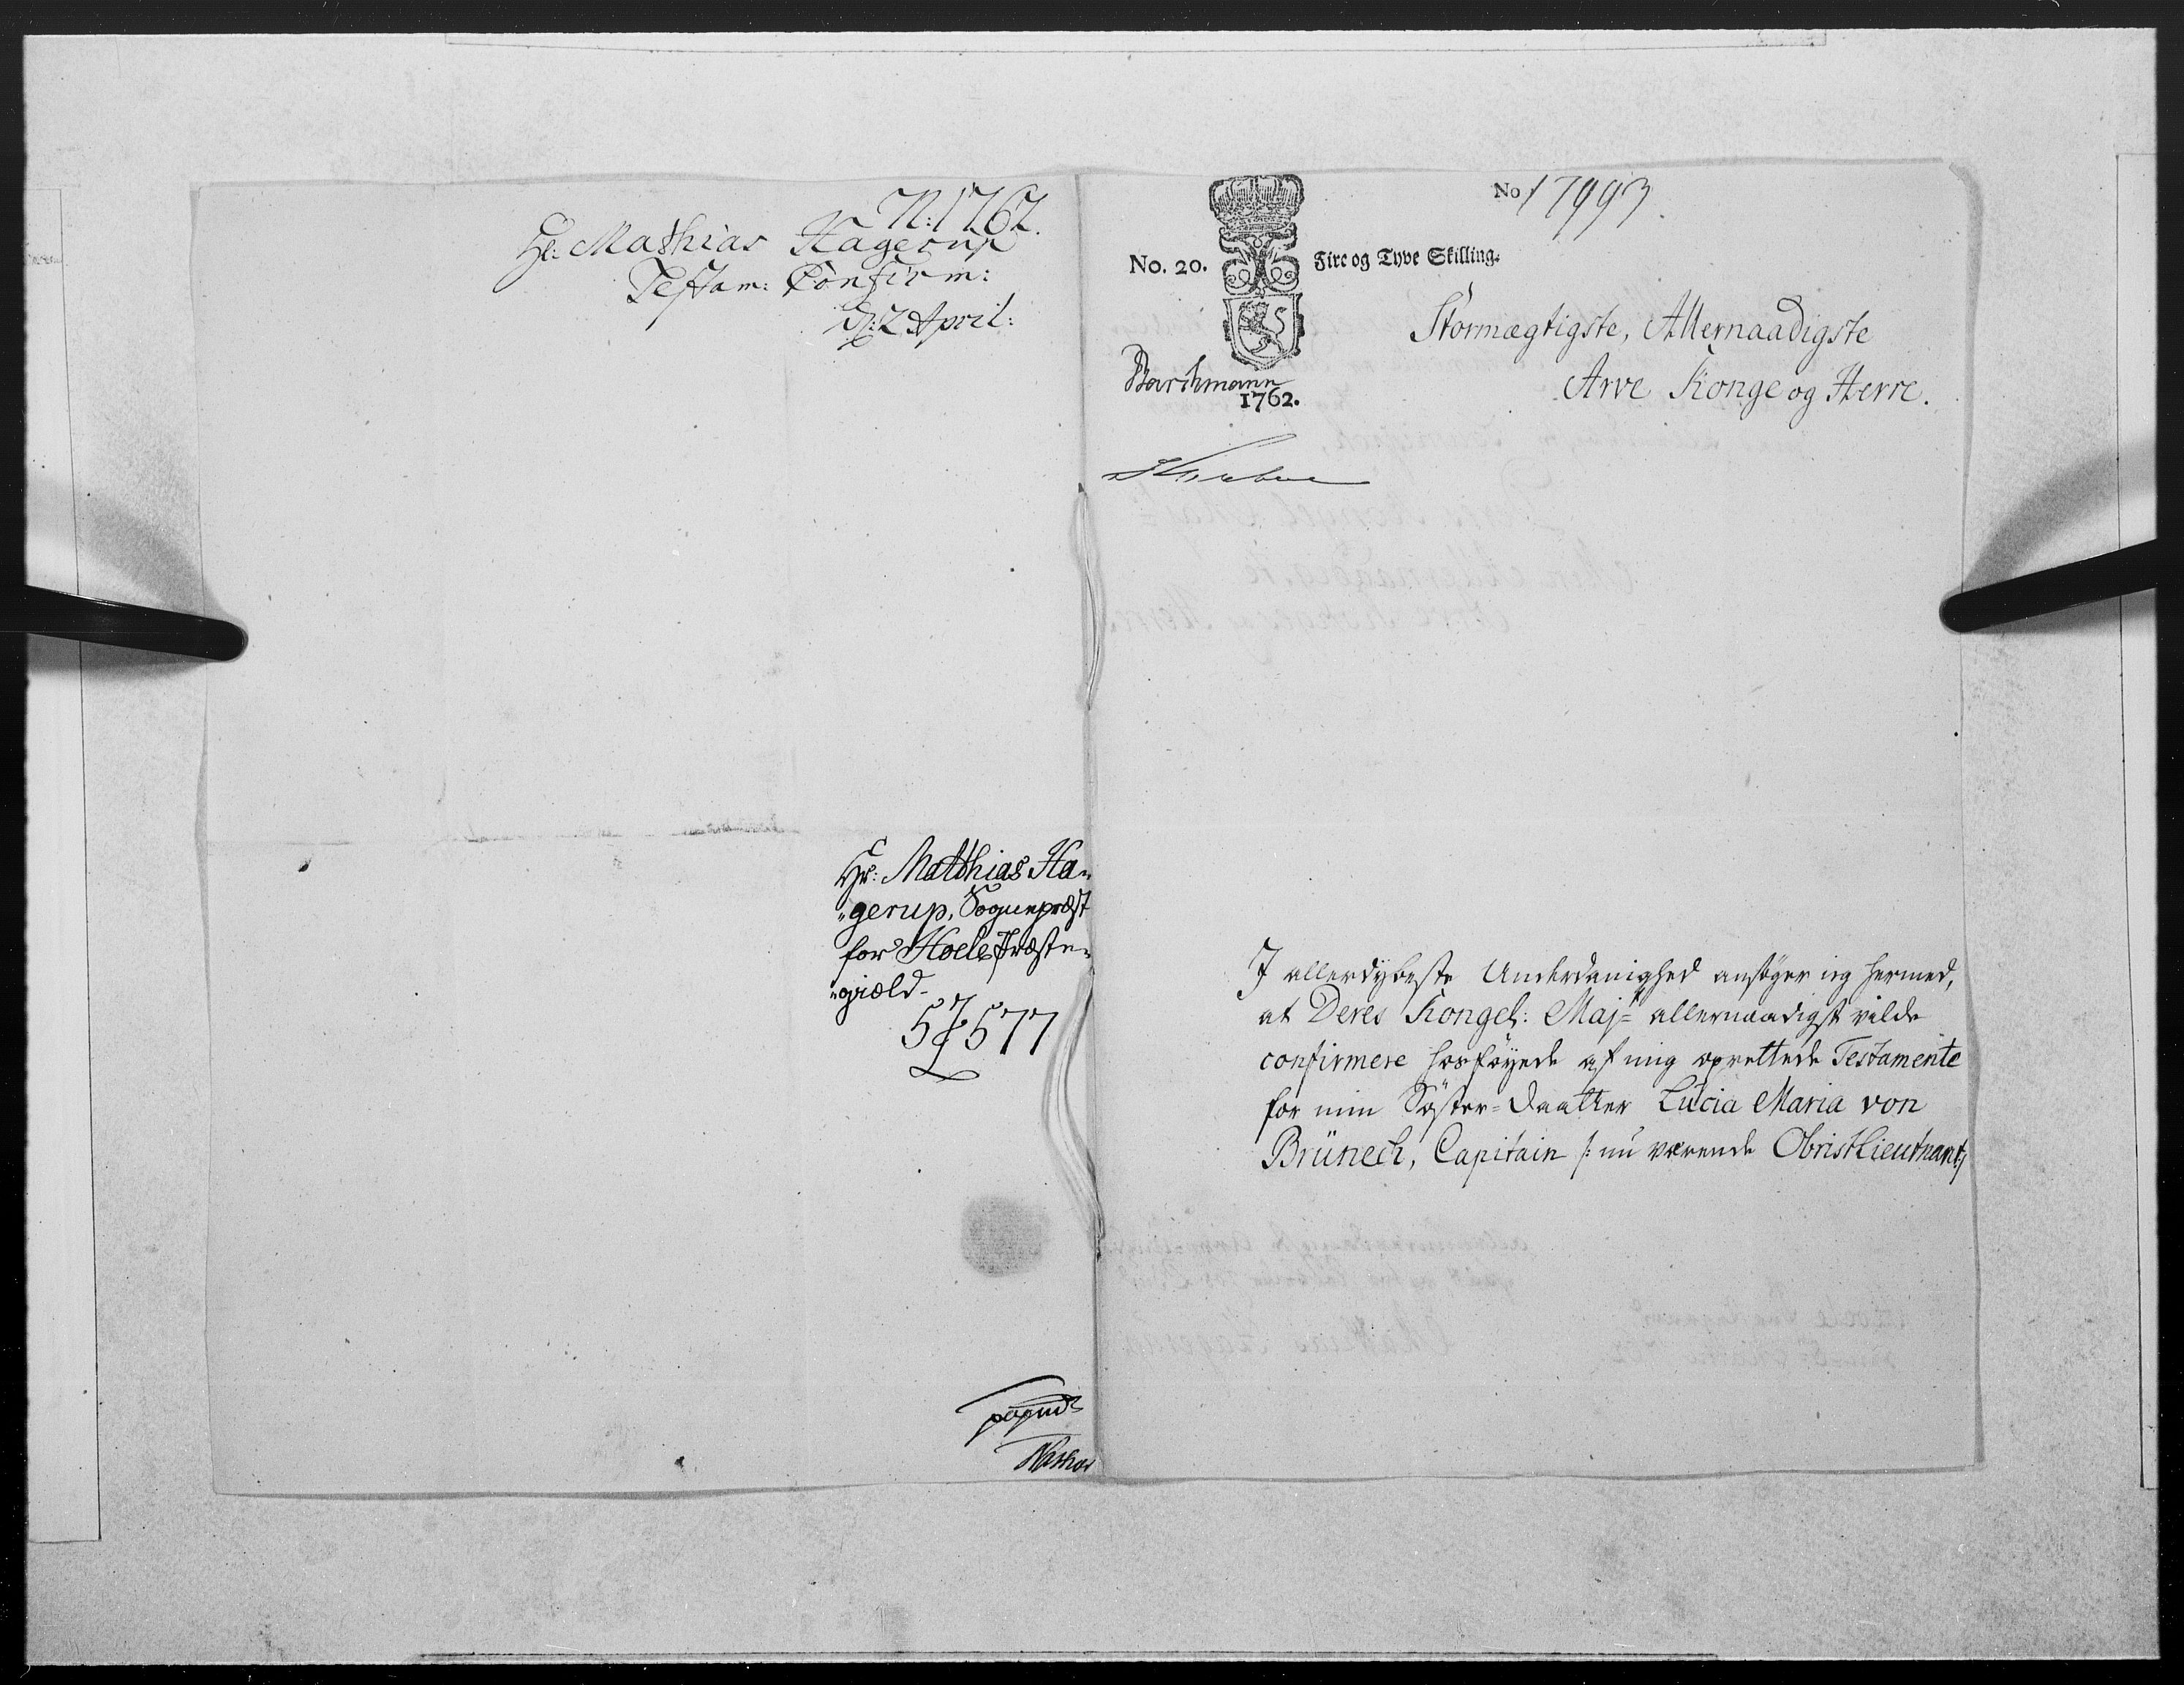 N: 1762.
Hr: Mathias Hagerup
Testam: Confirm:
d: 2 April:
Hr: Matthias Ha-
"gerup, Sognepræst
for Hoele Præste-
"gield-
57577
No 17993.
No. 20. Fire og Tyve Skilling.
Stormægtigste, Allernaadigste
Arve Konge og Herre.
Barchmann
1762.
I allerdybeste Underdanighed ansøger ieg hermed,
at Deres Kongel: Maj: allernaadigst vilde
confirmere hosføyede af mig oprettede Testamente
for min Søster-Daatter Lucia Maria von
Brünech, Capitain /: nu værende ObristLieutnant:/